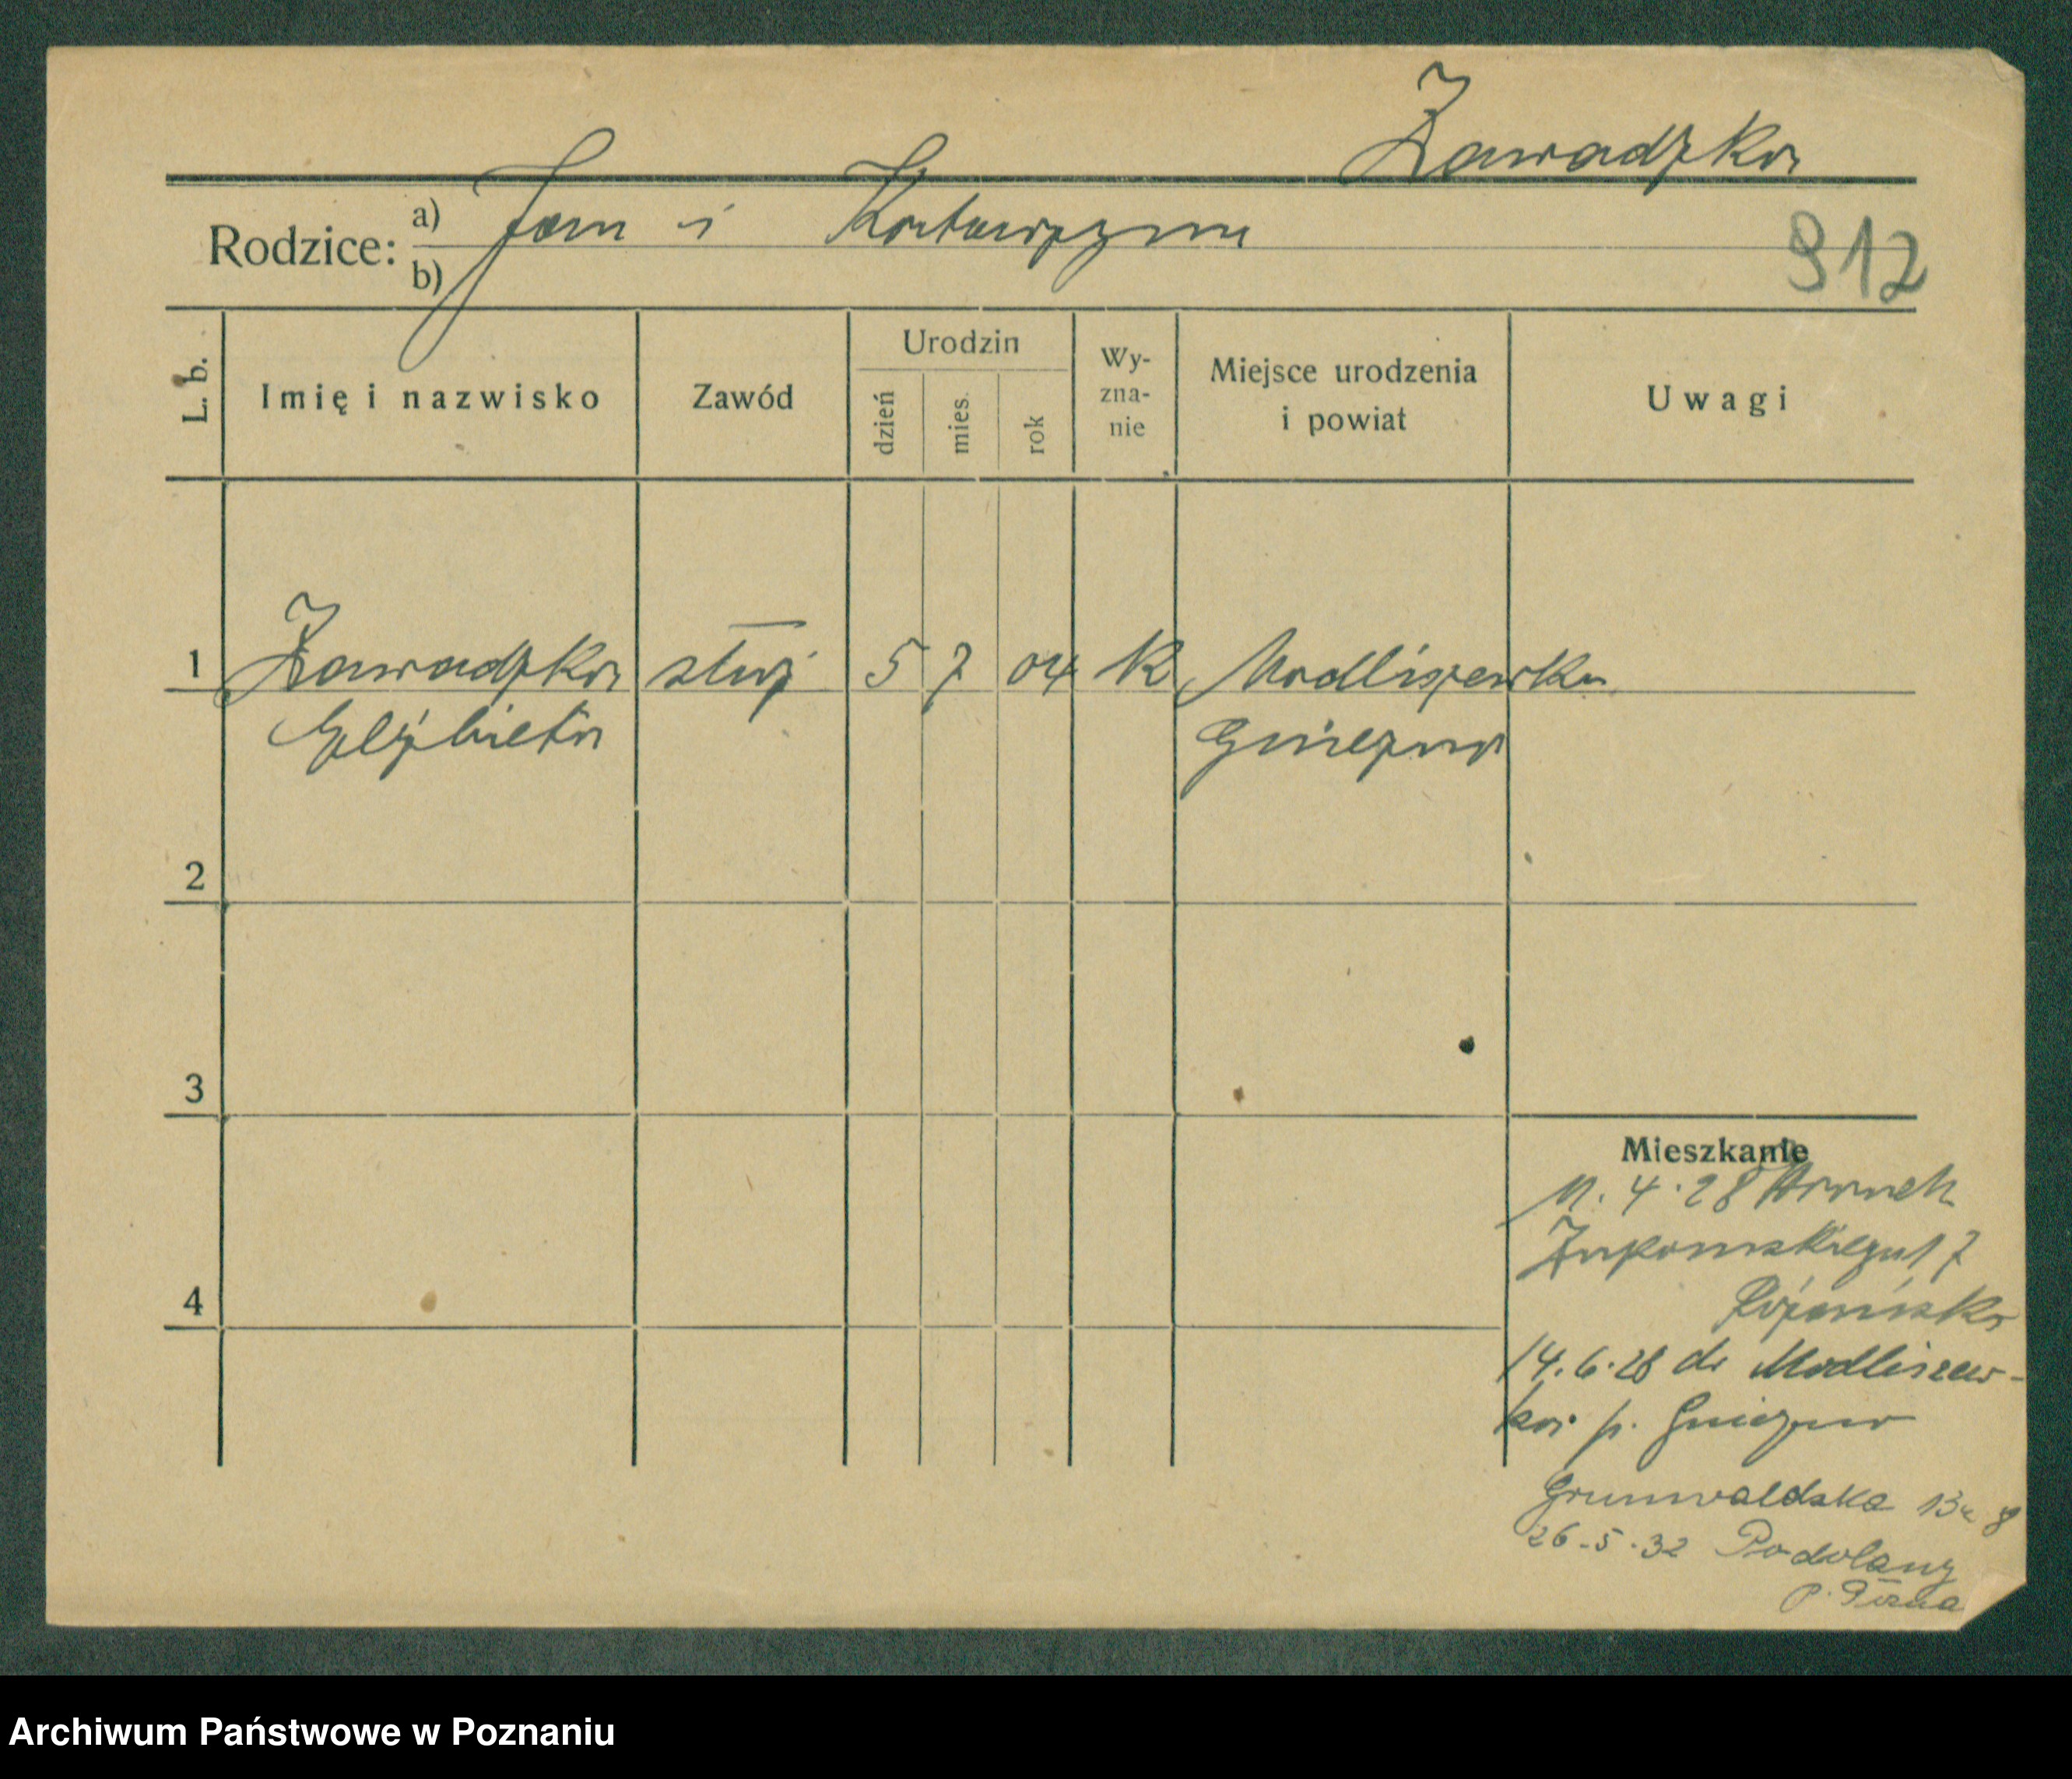 Zawadzka
Rodzice: a) Jan i Katarzyna
b)
912
L. b.
Imię i nazwisko
Zawód
Urodzin
dzień
mies.
rok
Wy-
zna-
nie
Miejsce urodzenia
i powiat
Uwagi
1 Zawadzka służ 5 7 04 K Modliszewka
Elżbieta Gniezno
2
3
4
Mieszkanie
11.4.28 Wronek
17
14.6.28 do Modliszew-
ka p. Gniezno
Grunwaldzka
26.5.32 Podolany
Archiwum Państwowe w Poznaniu